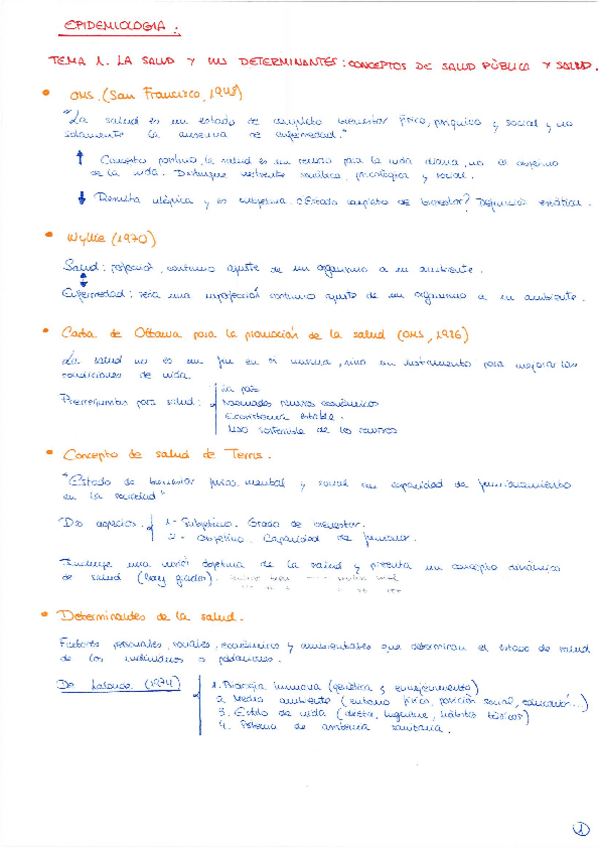 EPIDEMIOLOGIA :
TEMA 1. LA SALUD Y SUS DETERMINANTES : CONCEPTOS DE SALUD PÚBLICA Y SALUD.
• OMS. (San Francisco, 1948)
"La salud es un estado de completo bienestar físico, psíquico y social y no
solamente la ausencia de enfermedad."
↑ Concepto positivo, la salud es un recurso para la vida diaria, no el objetivo
de la vida. Distingue vertiente somática, psicológica y social.
↓ Resulta utópica y es subjetiva. ¿Estado completo de bienestar? Definición estática.
• Wylie (1970)
Salud : perfecto, continuo ajuste de un organismo a su ambiente.
Enfermedad : sería una imperfección continuo ajuste de un organismo a su ambiente.
• Carta de Ottawa para la promoción de la salud (OMS, 1986)
La salud no es un fin en sí misma, sino un instrumento para mejorar las
condiciones de vida.
Prerrequisitos para salud :
La paz
recursos económicos
Ecosistema estable.
Uso sostenible de los recursos
• Concepto de salud de Terris.
"Estado de bienestar físico, mental y social con capacidad de funcionamiento
en la sociedad"
Dos aspectos.
1- Subjetivo. Grado de bienestar.
2- Objetivo. Capacidad de funcionar.
Incluye una visión objetiva de la salud y presenta un concepto dinámico
de salud (hay grados).
• Determinantes de la salud.
Factores personales, sociales, económicos y ambientales que determinan el estado de salud
de los individuos o poblaciones.
De Lalonde (1974)
1. Biología humana (genética y envejecimiento)
2. Medio ambiente (entorno físico, posición social, educación...)
3. Estilo de vida (dieta, higiene, hábitos tóxicos)
4. Sistema de asistencia sanitaria.
1